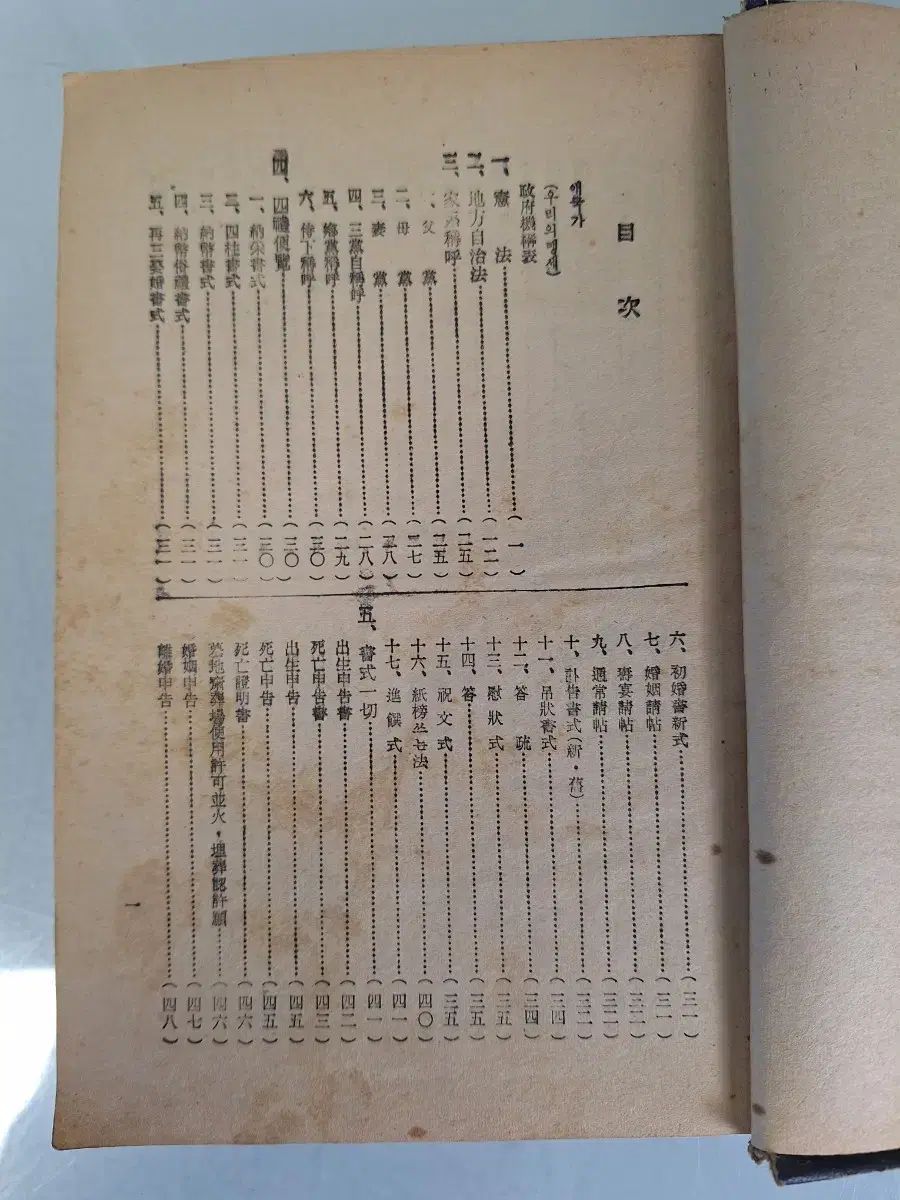 目次
애국가
(우리의맹세)
政府機構表
一、憲法………(一)
二、地方自治法………(一二)
三、家系稱呼………(二五)
一、父黨………(二五)
二、母黨………(二七)
三、妻黨………(二八)
四、三黨自稱呼………(二八)
五、鄉黨稱呼………(二九)
六、侍下稱呼………(三〇)
四、四禮便覽………(三〇)
一、納采書式………(三〇)
二、四柱書式………(三一)
三、納幣書式………(三一)
四、納幣俗禮書式………(三一)
五、再三娶婚書式………(三一)
六、初婚書新式………(三一)
七、婚姻請帖………(三一)
八、壽宴請帖………(三二)
九、通常請帖………(三二)
十、訃告書式(新·舊)………(三二)
十一、吊狀書式………(三四)
十二、答疏………(三四)
十三、慰狀式………(三五)
十四、答………(三五)
十五、祝文式………(三五)
十六、紙榜쓰는法………(四〇)
十七、進饌式………(四一)
五、書式一切………(四一)
出生申告書………(四二)
死亡申告書………(四三)
出生申告………(四五)
死亡申告………(四五)
死亡證明書………(四六)
墓地齋葬場使用許可並火,埋葬認許願………(四六)
婚姻申告………(四七)
離婚申告………(四八)
一